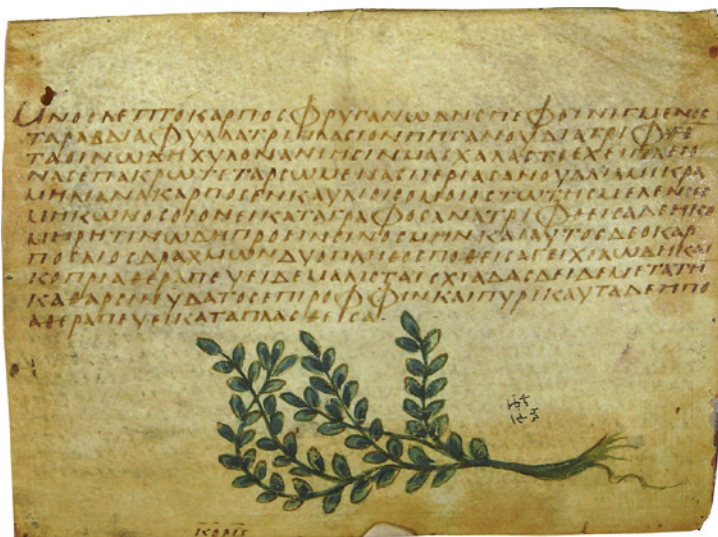 ΜΝΟΣΛΕΠΤΟΚΑΡΠΟΣΦΡΥΓΑΝΩΔΗΣΠΕΦΟΙΝΙΓΜΕΝΟΣ
ΤΑΡΑΒΔΙΑΣΦΥΛΛΑΤΡΙΠΛΑΣΙΟΝΠΗΓΑΝΟΥΔΙΑΤΡΙΦΘΕ
ΤΑΟΙΝΩΔΗΧΥΛΟΝΑΝΙΗΣΙΝΜΑΣΧΑΛΑΣΤΕΕΧΕΙΠΛΕΙΟ
ΝΑΣΕΠΑΚΡΩΤΕΤΑΡΣΩΜΕΝΑΣΠΕΡΙΑΣΑΝΘΥΛΛΙΑΜΙΚΡΑ
ΜΗΛΙΝΑΚΑΡΠΟΣΕΝΚΑΥΛΙΟΙΣΟΜΟΙΟΣΤΩΤΗΣΜΕΛΕΝΗΣ
ΜΗΚΩΝΟΣΟΙΟΝΕΙΚΑΤΑΓΡΑΦΟΣΑΝΑΤΡΙΦΘΕΙΣΑΔΕΗΚΟ
ΜΗΡΗΤΙΝΩΔΗΠΡΟΕΙΗΣΙΝΟΣΜΗΝΚΑΙΑΥΤΟΣΔΕΟΚΑΡ
ΠΟΣΛΙΟΣΔΡΑΧΜΩΝΔΥΟΠΛΗΘΟΣΠΟΘΕΙΣΑΓΕΙΧΟΛΩΔΗΚΑΙ
ΚΟΠΡΙΑΘΕΡΑΠΕΥΕΙΔΕΜΑΛΙΣΤΑΙΣΧΙΑΔΑΣΔΕΙΔΕΜΕΤΑΤΗ
ΚΑΘΑΡΣΙΝΥΔΑΤΟΣΕΠΙΡΟΦΦΙΝΚΑΙΠΥΡΙΚΑΥΤΑΔΕΗΠΟ
ΑΘΕΡΑΠΕΥΕΙΚΑΤΑΠΛΑΣΘΕΙΣΑ
ΚΟΡΙΣ